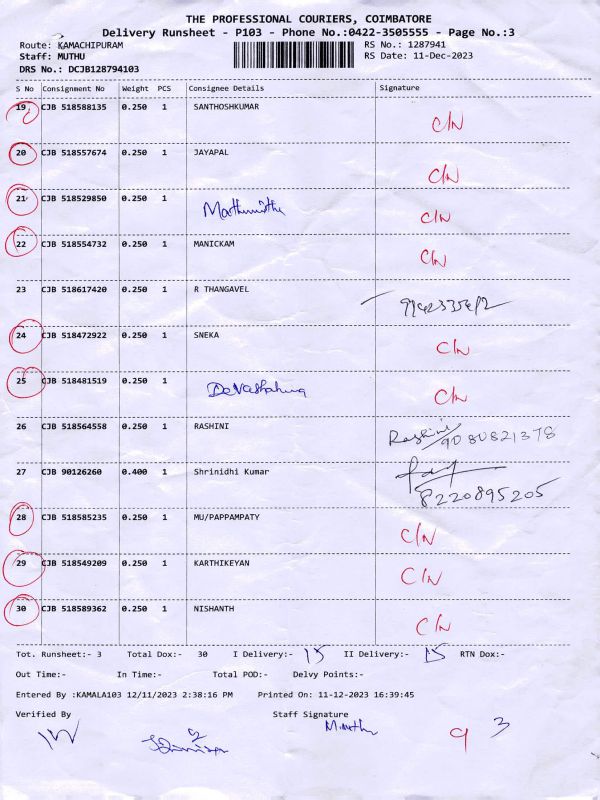 THE PROFESSIONAL COURIERS, COIMBATORE
Delivery Runsheet - P103 - Phone No.:0422-3505555 - Page No.:3
Route: KAMACHIPURAM RS No.: 1287941
Staff: MUTHU RS Date: 11-Dec-2023
DRS No.: DCJB128794103
S No Consignment No Weight PCS Consignee Details Signature
19 CJB 518588135 0.250 1 SANTHOSHKUMAR C/N
20 CJB 518557674 0.250 1 JAYAPAL C/N
21 CJB 518529850 0.250 1 C/N
22 CJB 518554732 0.250 1 MANICKAM C/N
23 CJB 518617420 0.250 1 R THANGAVEL
24 CJB 518472922 0.250 1 SNEKA C/N
25 CJB 518481519 0.250 1 C/N
26 CJB 518564558 0.250 1 RASHINI Rashini/9080821378
27 CJB 90126260 0.400 1 Shrinidhi Kumar 8220895205
28 CJB 518585235 0.250 1 MU/PAPPAMPATY C/N
29 CJB 518549209 0.250 1 KARTHIKEYAN C/N
30 CJB 518589362 0.250 1 NISHANTH C/N
Tot. Runsheet:- 3 Total Dox:- 30 I Delivery:- 15 II Delivery:- 15 RTN Dox:-
Out Time:- In Time:- Total POD:- Delvy Points:-
Entered By :KAMALA103 12/11/2023 2:38:16 PM Printed On: 11-12-2023 16:39:45
Verified By Staff Signature
M.muthu 9 3